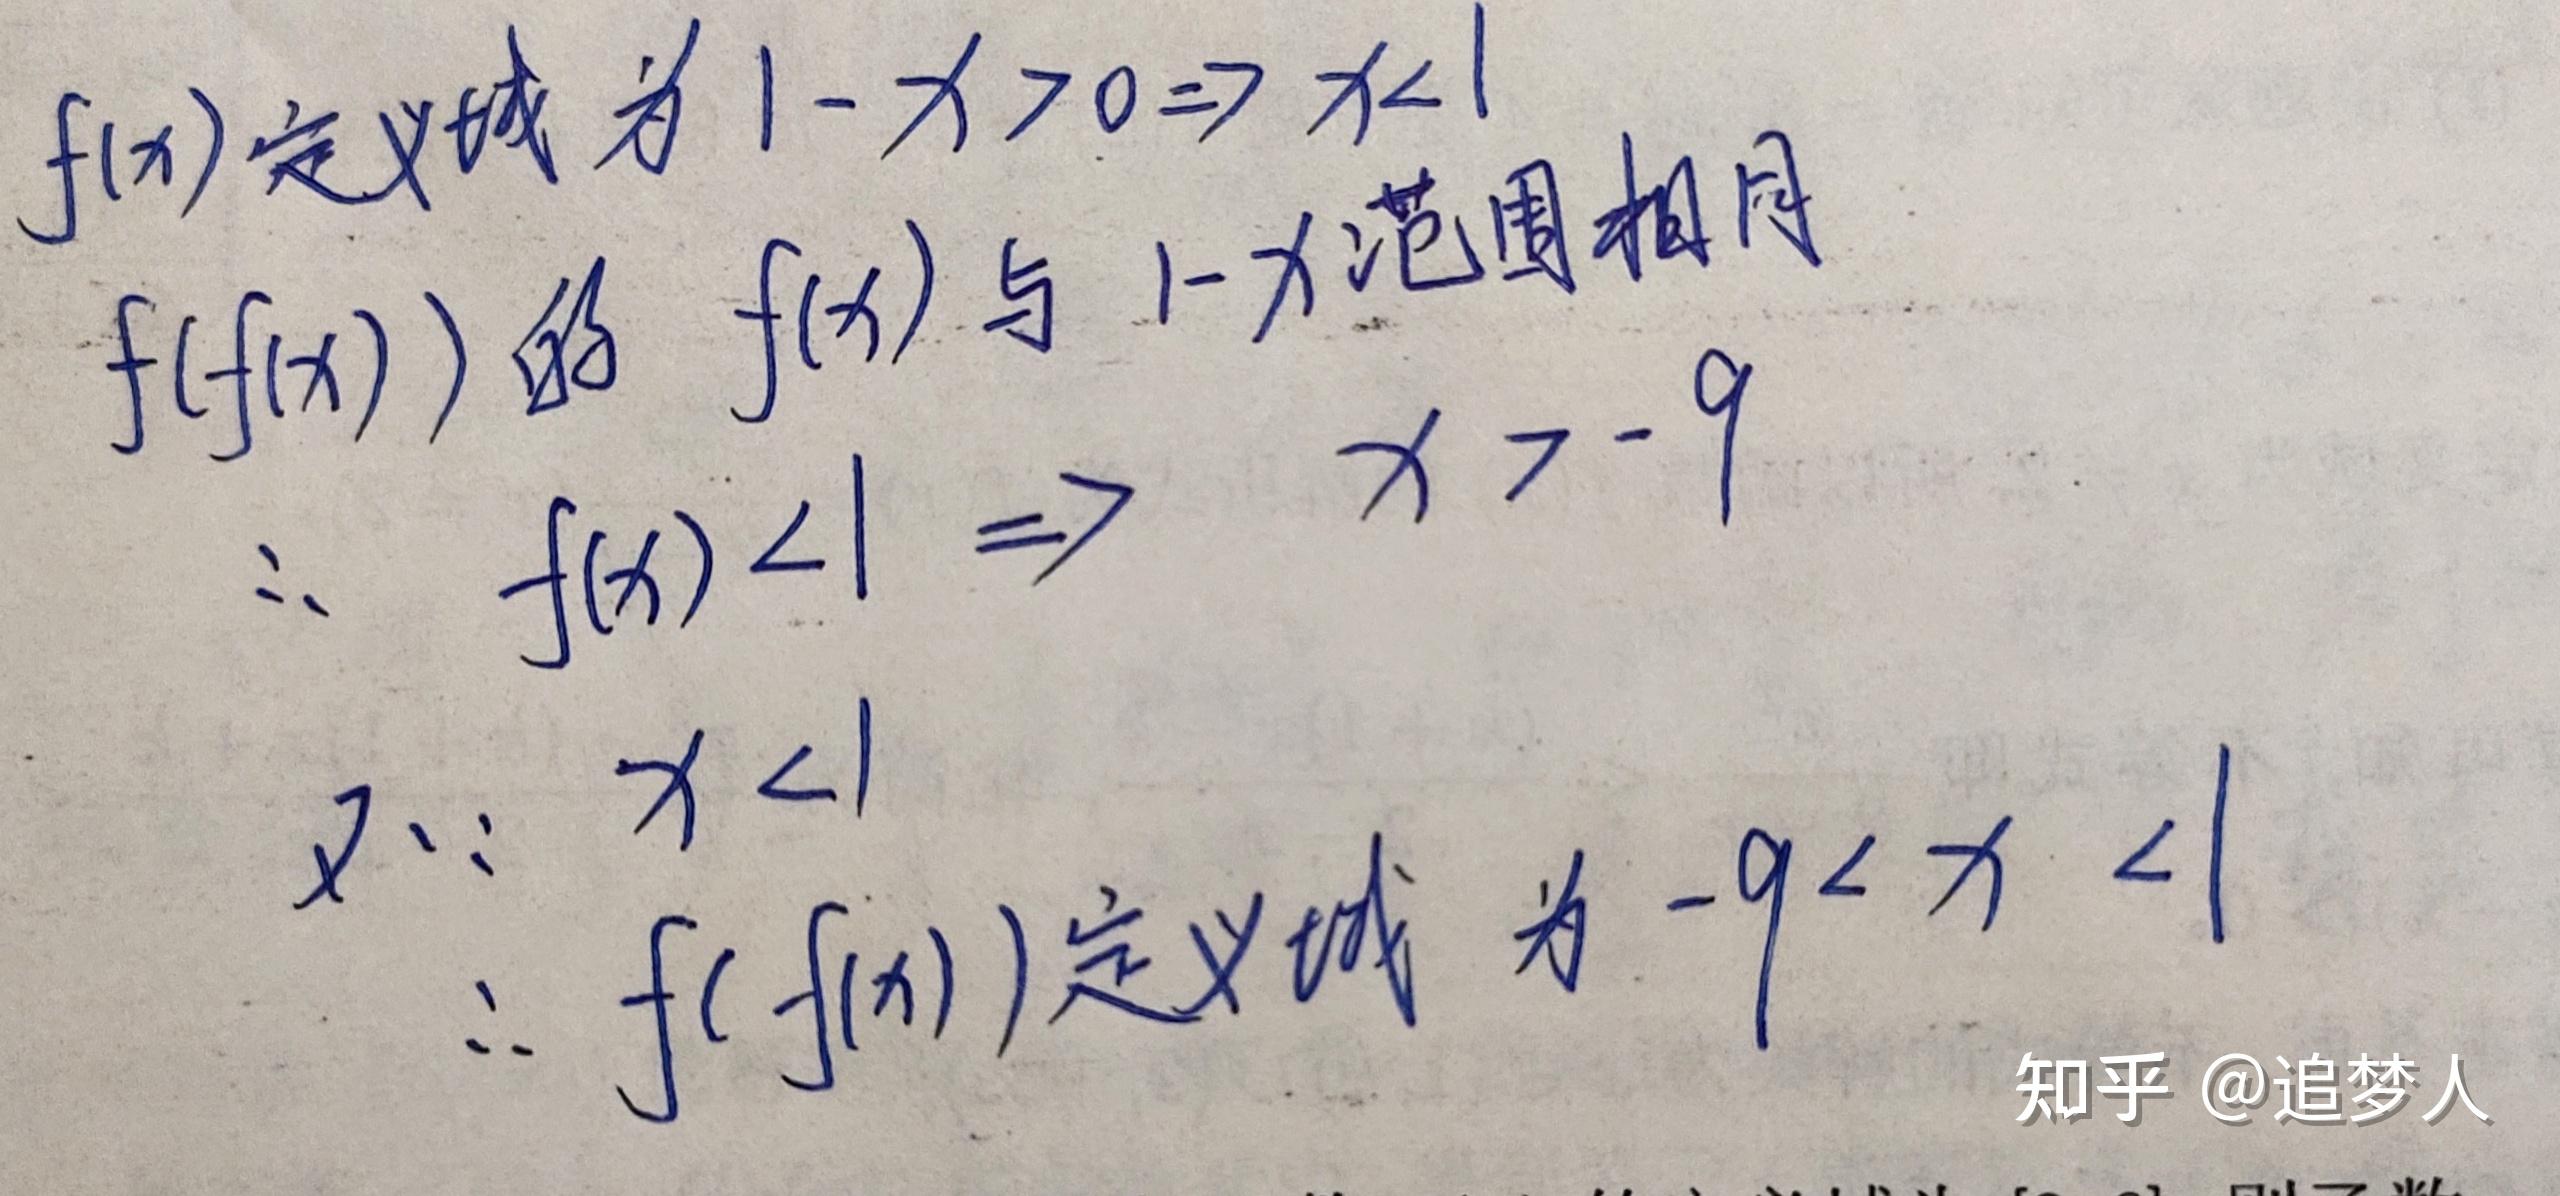 f(x)定义域为1-x>0=>x<1
f(f(x))的 f(x)与 1-x范围相同
∴ f(x)<1 => x>-9
又∵ x<1
∴ f(f(x))定义域 为 -9<x<1
知乎 @追梦人